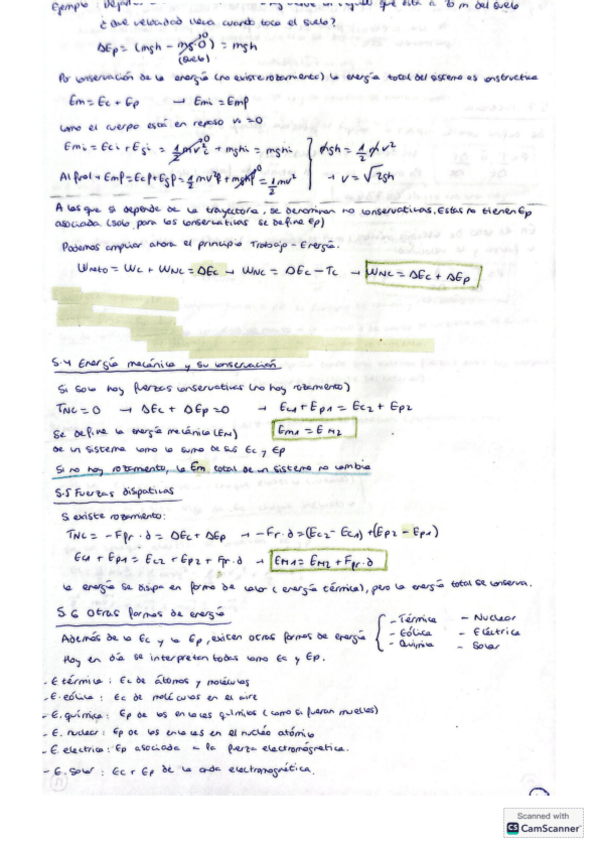 ¿Que velocidad lleva cuando toca el suelo?
ΔEp = (mgh - mg·0) = mgh
(suelo)
Por conservación de la energía (no existe rozamiento) la energía total del sistema es constructiva
Em = Ec + Ep → Emi = Emf
como el cuerpo está en reposo vi = 0
Emi = Eci + Egi = 1/2 mvi² + mghi = mghi
Al final → Emf = Ecf + Egf = 1/2 mvf² + mghf = 1/2 mv²
mgh = 1/2 mv²
→ v = √2gh
A las que si depende de la trayectoria, se denominan no conservativas. Estas no tienen Ep
asociada (solo para las conservativas se define Ep)
Podemos ampliar ahora el principio Trabajo - Energía.
Wneto = Wc + WNC = ΔEc → WNC = ΔEc - Tc → WNC = ΔEc + ΔEp
5.4 Energía mecánica y su conservación
Si solo hay fuerzas conservativas (no hay rozamiento)
TNC = 0 → ΔEc + ΔEp = 0 → Ec1 + Ep1 = Ec2 + Ep2
Se define la energía mecánica (EM) EM1 = EM2
de un sistema como la suma de sus Ec y Ep
Si no hay rozamiento, la Em total de un sistema no cambia
5.5 Fuerzas disipativas
Si existe rozamiento:
TNC = -Ffr · d = ΔEc + ΔEp → -Fr · d = (Ec2 - Ec1) + (Ep2 - Ep1)
Ec1 + Ep1 = Ec2 + Ep2 + Ffr · d → EM1 = EM2 + Ffr · d
la energía se disipa en forma de calor (energía térmica), pero la energía total se conserva.
5.6 Otras formas de energía
Además de la Ec y la Ep, existen otras formas de energía
- Térmica - Nuclear
- Eólica - Eléctrica
- Química - Solar
Hoy en día se interpretan todas como Ec y Ep.
- E térmica: Ec de átomos y moléculas
- E. eólica: Ec de moléculas en el aire
- E. química: Ep de los enlaces químicos (como si fueran muelles)
- E. nuclear: Ep de los enlaces en el nucleo atómico
- E electrica: Ep asociada a la fuerza electromagnetica.
- E. Solar: Ec + Ep de la onda electromagnética.
Scanned with
CS CamScanner